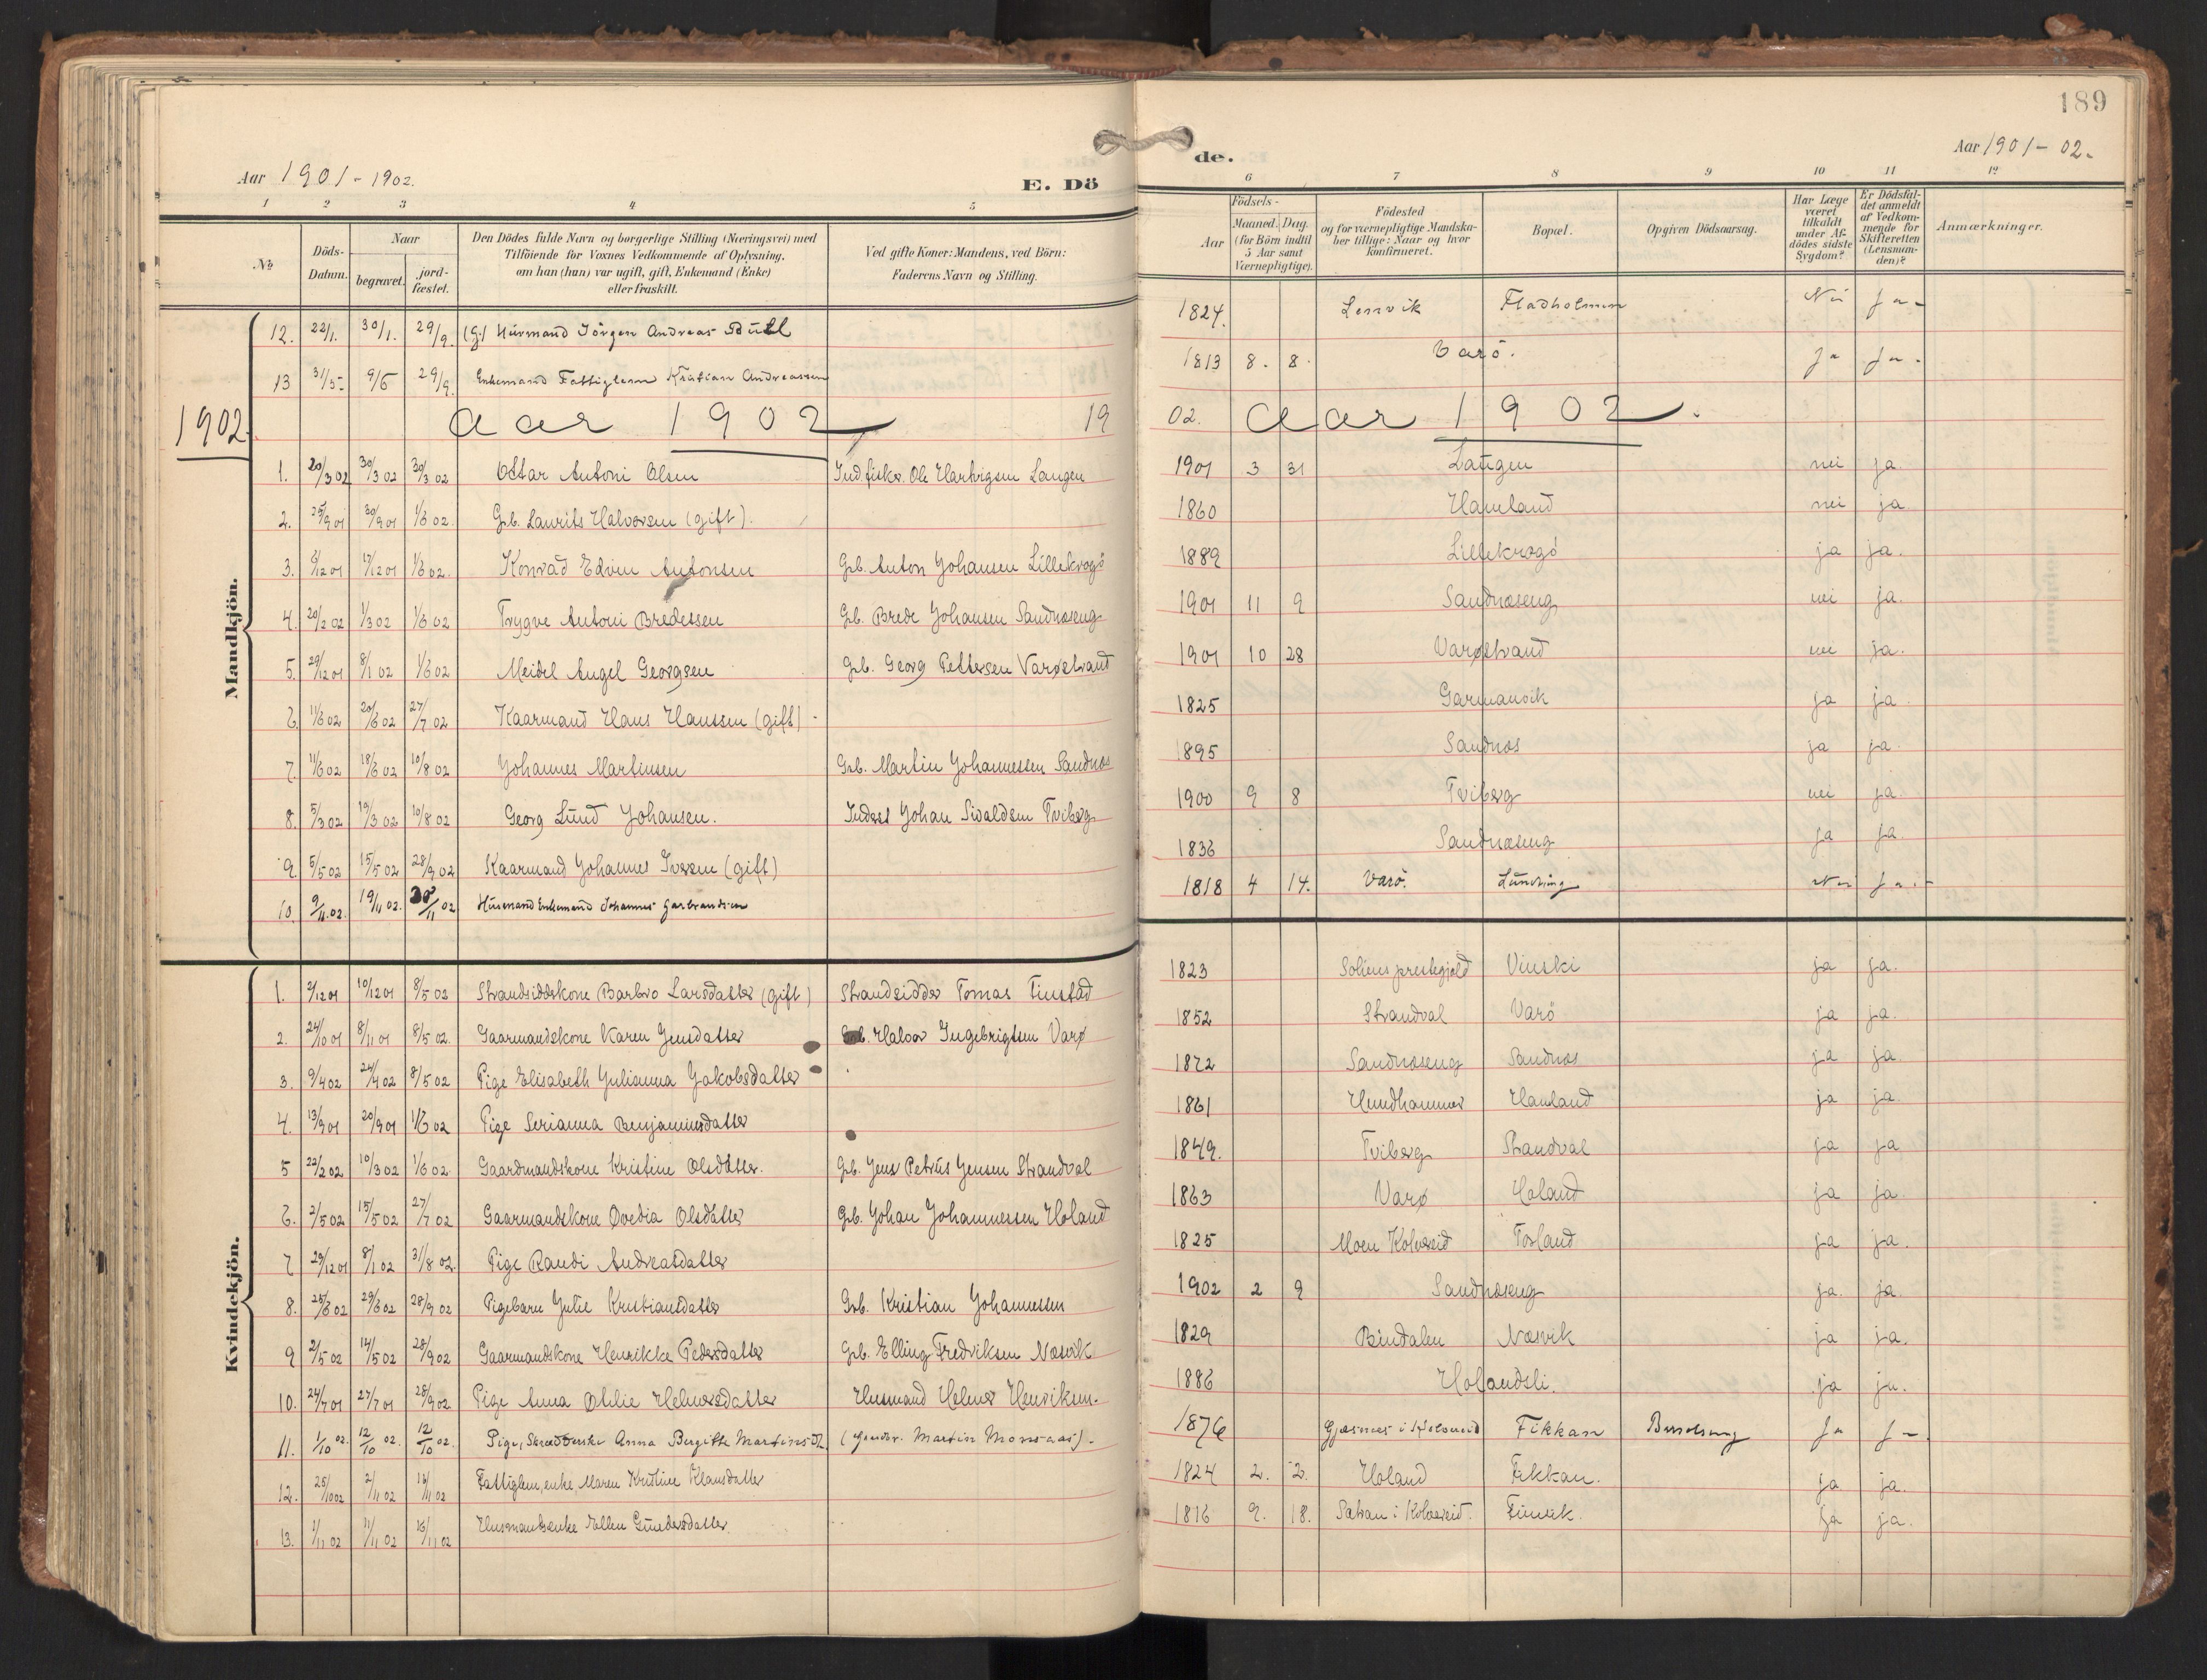 189
Aar 1901-1902.
E. Dö
de.
Aar 1901-02.
1 2 3 4 5
6 7 8 9 10 11 12
№
Döds-Datum.
Naar
begravet.
jord-fæstet.
Den Dödes fulde Navn og borgerlige Stilling (Næringsvei) med
Tilföiende for Voxnes Vedkommende af Oplysning.
om han (hun) var ugift, gift, Enkemand (Enke)
eller fraskilt.
Ved gifte Koner: Mandens, ved Börn:
Faderens Navn og Stilling.
Födsels-
Aar
Maaned. Dag.
(for Börn indtil
5 Aar samt
Værnepligtige).
Födested
og for værnepligtige Mandska-
ber tillige: Naar og hvor
konfirmeret.
Bopæl.
Opgiven Dödsaarsag.
Har Læge
været
tilkaldt
under Af-
dödes sidste
Sygdom?
Er Dödsfal-
det anmeldt
af Vedkom-
mende for
Skifteretten
(Lensman-
den)?
Anmærkninger.
Mandkjön.
12. 22/1. 30/1. 29/9. (G) Husmand Jörgen Andreas 1824. Lenvik Fladholmen Nei Ja-
13 31/5- 9/6 29/9. Enkemand Fattiglem Kristian Andreassen 1813 8. 8. Varö. Ja Ja.
1902. Aar 1902 19 02. Aar 1902.
1. 20/3 02 30/3 02 30/3 02 Ottar Antoni Olsen Ind. fisker. Ole Hartvigsen Langen 1901 3 31 Langen nei ja.
2. 25/9 01 30/9 01 1/6 02. Grb. Laurits Halvorsen (gift). 1860 Hamland nei ja.
3. 6/12 01 17/12 01 1/6 02. Konrad Edvin Antonsen Grb. Anton Johansen Lillekragö 1889 Lillekragö ja ja.
4. 20/2 02 1/3 02 1/6 02 Trygve Antoni Bredessen Grb. Brede Johansen Sandnæseng 1901 11 9 Sandnæseng nei ja.
5. 29/12 01 8/1 02 1/6 02 Meidel Angel Georgsen Grb. Georg Pettersen Varøstrand 1901 10 28 Varøstrand nei ja.
6. 11/6 02 20/6 02 27/7 02 Kaarmand Hans Hanssen (gift) - 1825 Garmansvik ja ja
7. 11/6 02 18/6 02 10/8 02 Johannes Martinsen Grb. Martin Johannessen Sandnæs 1895 Sandnæs ja ja.
8. 5/3 02 19/3 02 10/8 02 Georg Lund Johansen. Inderst Johan Sivaldsen Tviberg 1900 9 8 Tviberg nei ja.
9. 5/5 02 15/5 02 28/9 02 Kaarmand Johannes Iversen (gift) 1836 Sandnæseng ja ja.
10. 9/11.02. 19/11 02. 30/11 02 Husmand Enkemand Johannes Garbrandsen 1818 4 14. Varö. Nei Ja.-
Kvindekjön.
1. 2/12 01 10/12 01 8/5 02 Strandsidderskone Barbro Larsdatter (gift) Strandsidder Tomas Finstad 1823 Soliens prestegjeld ja ja.
2. 24/10 01 8/11 01 8/5 02. Gaarmandskone Karen Jensdatter Grb. Halvor Ingebrigtsen Varø 1852 Strandval Varö ja ja.
3. 9/4 02 24/4 02 8/5 02 Pige Elisabeth Julianna Jakobsdatter 1872 Sandnæseng Sandnæs ja ja.
4. 13/9 01 20/9 01 1/6 02 Pige Serianna Benjaminsdatter 1861 Hundhammer Hamland ja ja.
5 22/2 02 10/3 02 1/6 02. Gaardmandskone Kristine Olsdatter. Grb. Jens Petrus Jensen Strandval 1849. Tviberg Strandval ja ja
6. 2/5 02 15/5 02 27/7 02 Gaarmandskone Ovedia Olsdatter Grb. Johan Johannessen Holand 1863 Varø Holand ja ja.
7 29/12 01 8/1 02 31/8 02. Pige Randi Andreasdatter 1825 Moen Kolvereid Forland ja ja.
8. 25/6 02 29/6 02 28/9 02 Pigebarn Julie Kristiansdatter Grb. Kristian Johannessen 1902 2 9 Sandnæseng ja. ja
9 2/5 02 14/5 02 28/9 02 Gaarmandskone Henrikke Pedersdatter Grb. Elling Fredriksen Næsvik 1829 Bindalen Næsvik ja ja.
10. 24/7 01 27/7 01 28/9 02 Pige Anna Otilie Helmersdatter Husmand Helmer Henriksen. 1886 Holandsli. ja ja.
11. 1/10 02. 12/10 02. 12/10 02. Pige, Skrædderske Anna Bergitte Martinsdt. (Gaardbr. Martin Monsaas). 1876 Gjæsnes i Kolvereid Fikkan Ja Ja-
12. 25/10 02 2/11 02 16/11 02 Fattiglem, enke, Maren Kristine Klausdatter 1824 2. 2. Holand Fikkan. ja ja.
13. 1/11 02 11/11 02 16/11 02 Husmandsenke Ellen Gundersdatter. 1816 9. 18. Sætran i Kolvereid. Finvik. ja ja.